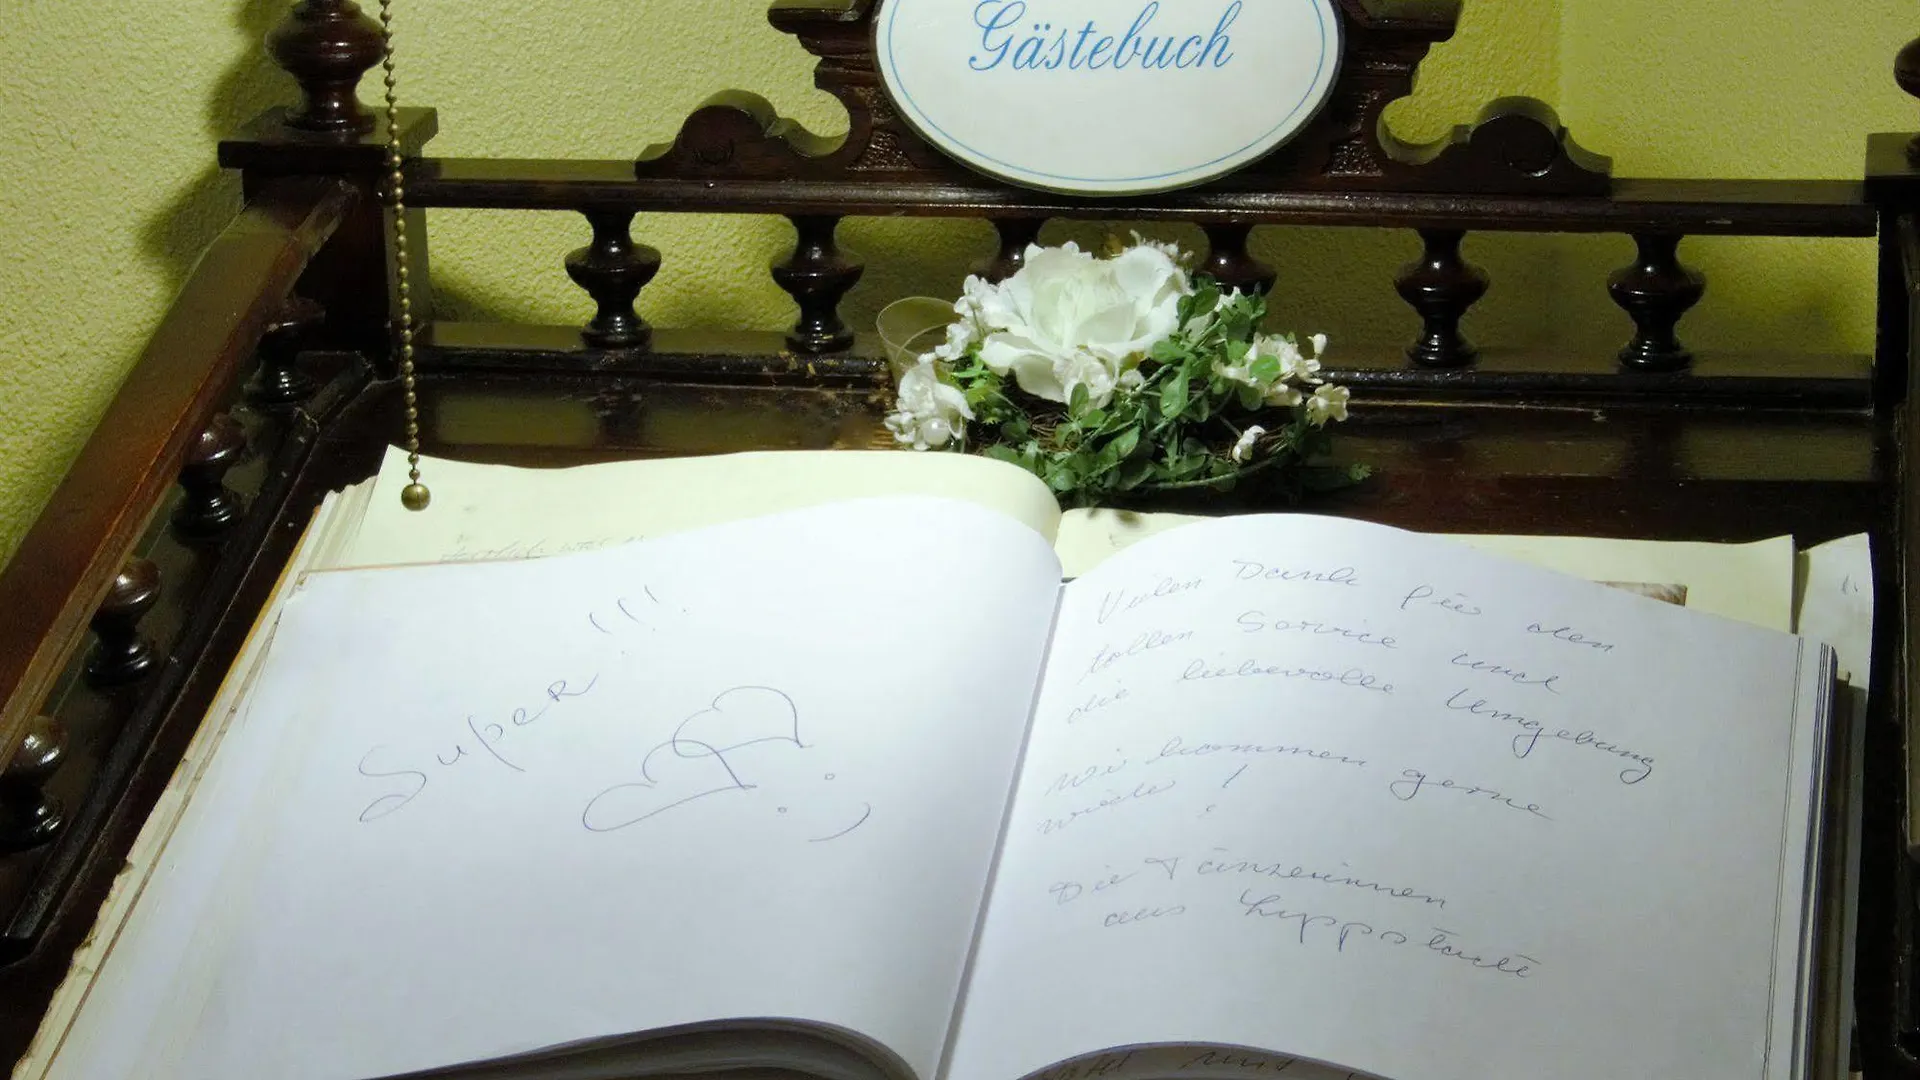 Gästebuch
Super!!!
:)
Vielen Dank für den
tollen Service und
die liebevolle Umgebung
Wir kommen gerne
wieder!
Die Tänzerinnen
aus Lippstadt
und